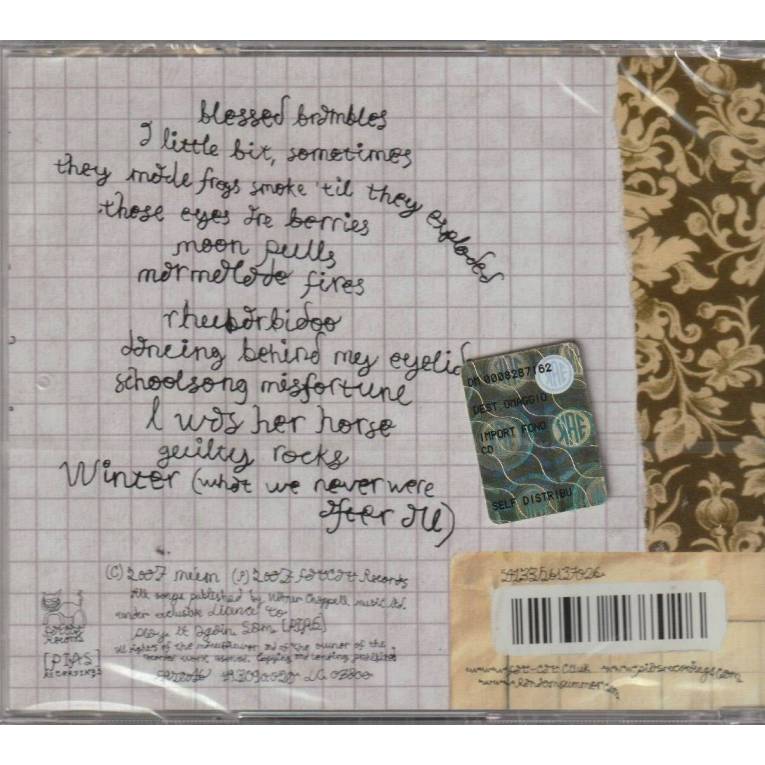 blessed brambles
a little bit, sometimes
they made frogs smoke 'til they exploded
these eyes are berries
moon pulls
marmalade fires
rhuubarbidoo
dancing behind my eyelid
schoolsong misfortune
I was her horse
guilty rocks
Winter (what we never were
after all)
DM 0008287162
DEST OMAGGIO
IMPORT FONO
CD
SELF DISTRIBU
(C) 2007 múm (P) 2007 fatcat Records
All songs published by Warner Chappell music ltd.
under exclusive license to
play it again Sam [PIAS]
All rights of the manufacturer and of the owner of the
fatcat
Records
[PIAS]
RECORDINGS